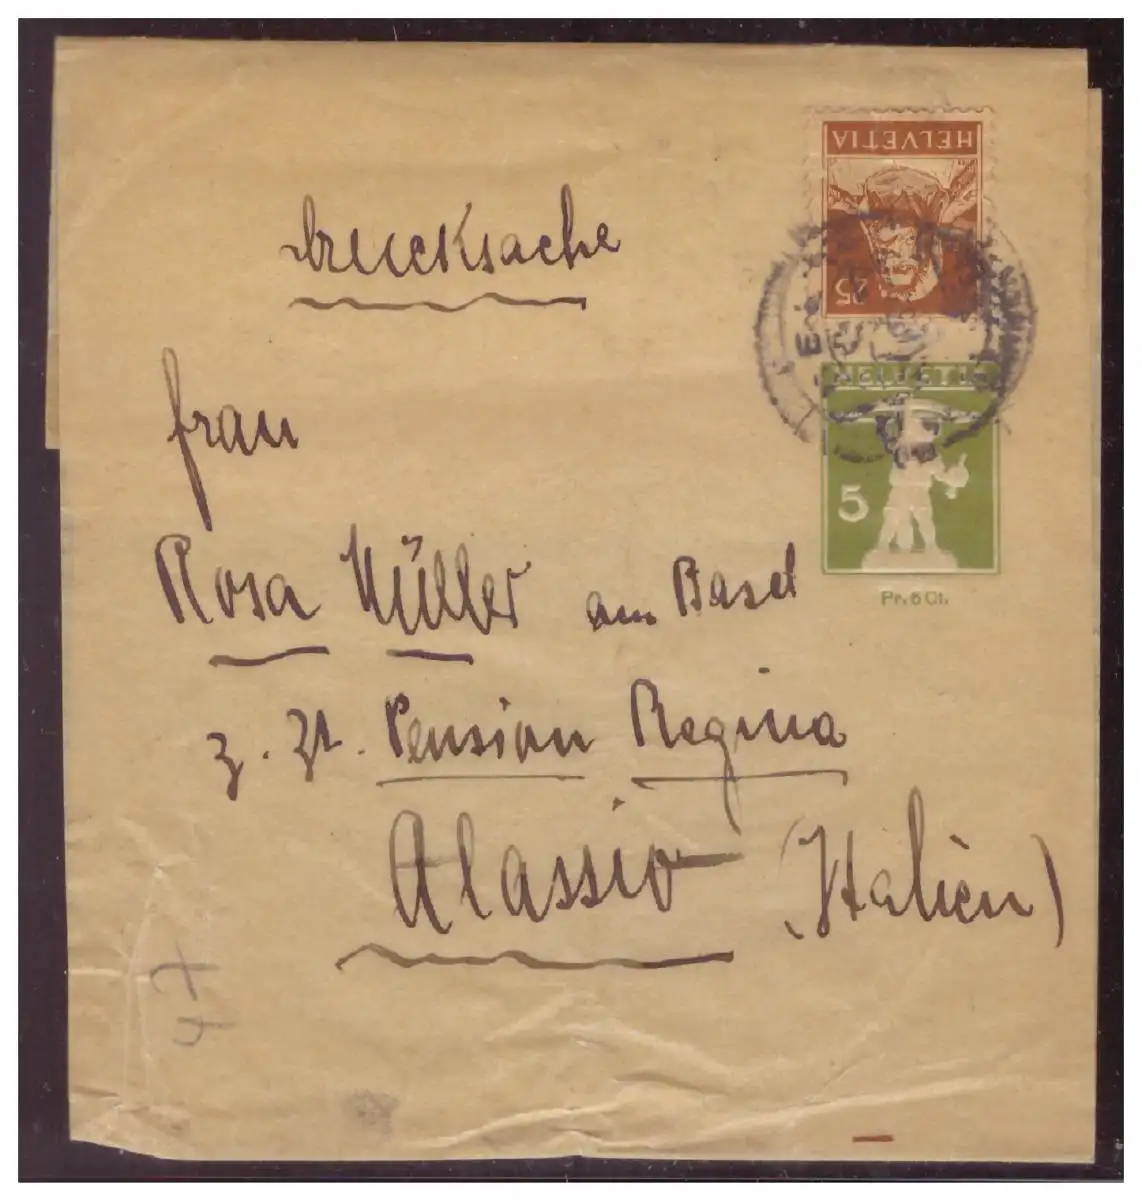 HELVETIA
25
Drucksache
HELVETIA
5
Pr. 6 Ct.
Frau
Rosa Müller aus Basel
z. Zt. Pension Regina
Alassio (Italien)
47